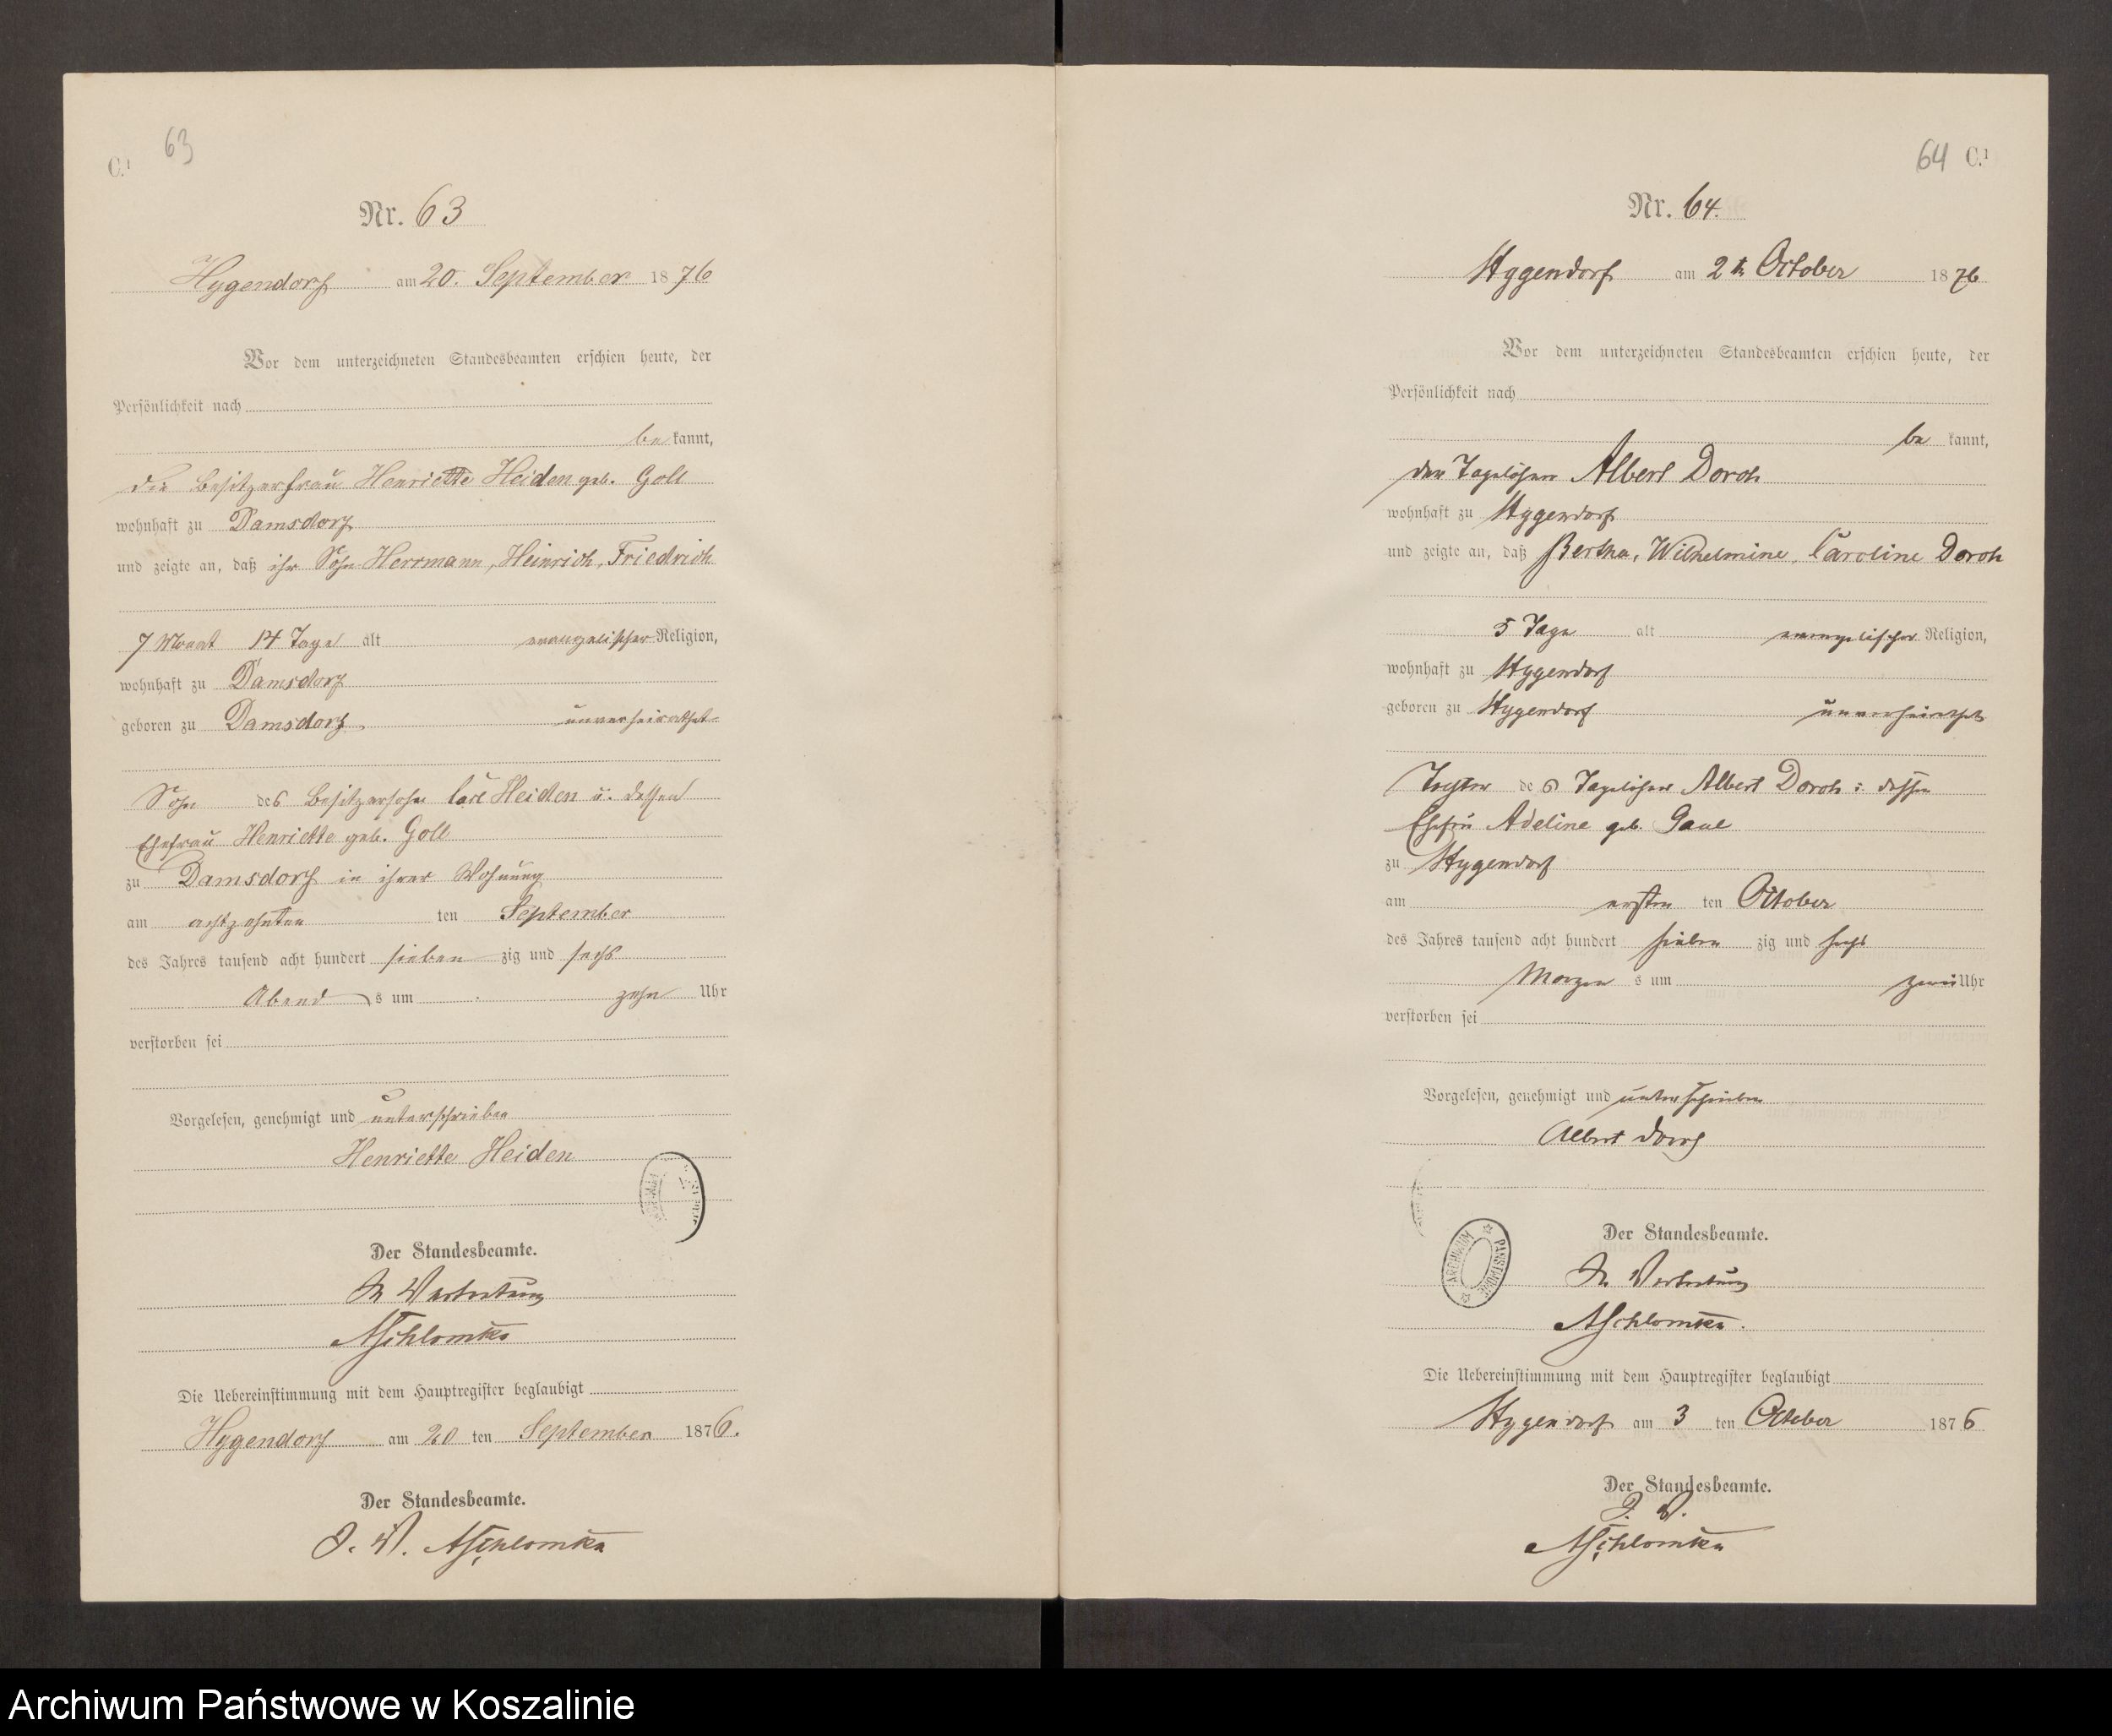 C.¹ 63
Nr. 63
Hygendorf am 20. September 1876
Vor dem unterzeichneten Standesbeamten erschien heute, der
Persönlichkeit nach
be kannt,
die Besitzerfrau Henriette Heiden geb. Goll
wohnhaft zu Damsdorf
und zeigte an, daß ihr Sohn Herrmann, Heinrich, Friedrich
7 Monat 14 Tage alt evangelischer Religion,
wohnhaft zu Damsdorf
geboren zu Damsdorf, unverheirathet
Sohn des Besitzersohn Carl Heiden u. dessen
Ehefrau Henriette geb. Goll
zu Damsdorf in ihrer Wohnung
am achtzehnten ten September
des Jahres tausend acht hundert sieben zig und sechs
Abend s um zehn Uhr
verstorben sei
Vorgelesen, genehmigt und unterschrieben
Henriette Heiden
Der Standesbeamte.
In Vertretung
ASchlomka
Die Uebereinstimmung mit dem Hauptregister beglaubigt
Hygendorf am 20 ten September 1876.
Der Standesbeamte.
J. V. ASchlomka
64 C.¹
Nr. 64.
Hygendorf am 2 t October 1876
Vor dem unterzeichneten Standesbeamten erschien heute, der
Persönlichkeit nach
be kannt,
der Tagelöhner Albert Dorch
wohnhaft zu Hygendorf
und zeigte an, daß Bertha, Wilhelmine, Caroline Dorch
5 Tage alt evangelischer Religion,
wohnhaft zu Hygendorf
geboren zu Hygendorf unverheirathet
Tochter des Tagelöhner Albert Dorch u dessen
Ehefrau Adeline geb. Gaul
zu Hygendorf
am ersten ten October
des Jahres tausend acht hundert sieben zig und sechs
Morgen s um zwei Uhr
verstorben sei
Vorgelesen, genehmigt und unterschrieben
Albert Dorch
ARCHIWUM PAŃSTWOWE
Der Standesbeamte.
In Vertretung
ASchlomka.
Die Uebereinstimmung mit dem Hauptregister beglaubigt
Hygendorf am 3 ten October 1876
Der Standesbeamte.
J. V.
ASchlomka
Archiwum Państwowe w Koszalinie